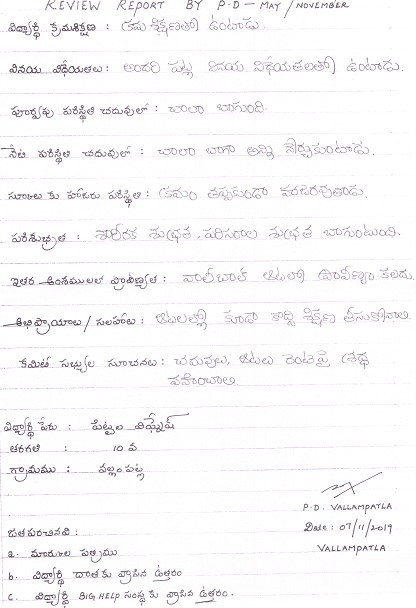 REVIEW REPORT BY P.D - MAY / NOVEMBER
విద్యార్థి క్రమశిక్షణ : క్రమ శిక్షణతో ఉంటాడు.
వినయ విధేయతలు : అందరి పట్ల వినయ విధేయతలతో ఉంటాడు.
పూర్వపు పరిస్థితి చదువులో : చాలా బాగుంది.
నేటి పరిస్థితి చదువులో : చాలా బాగా అన్ని నేర్చుకుంటాడు.
స్కూలు కు హాజరు పరిస్థితి : క్రమం తప్పకుండా హాజరవుతాడు.
పరిశుభ్రత : శారీరక శుభ్రత, పరిసరాల శుభ్రత బాగుంటుంది.
ఇతర అంశములలో ప్రావీణ్యత : వాలీబాల్ ఆటలో ప్రావీణ్యం కలదు.
అభిప్రాయాలు / సలహాలు : ఆటలల్లో కూడా శిక్షణ తీసుకోవాలి.
కమిటి సభ్యుల సూచనలు : చదువులు, ఆటలు రెంటిపై శ్రద్ధ
వహించాలి
విద్యార్థి పేరు : పిట్టల విఘ్నేష్
తరగతి : 10 వ
గ్రామము : వల్లంపట్ల
P.D. VALLAMPATLA
Date : 07/11/2019
VALLAMPATLA
జతపరచినవి :
a. మార్కుల పత్రము
b. విద్యార్థి దాతకు వ్రాసిన ఉత్తరం
c. విద్యార్థి BIG HELP సంస్థ కు వ్రాసిన ఉత్తరం.